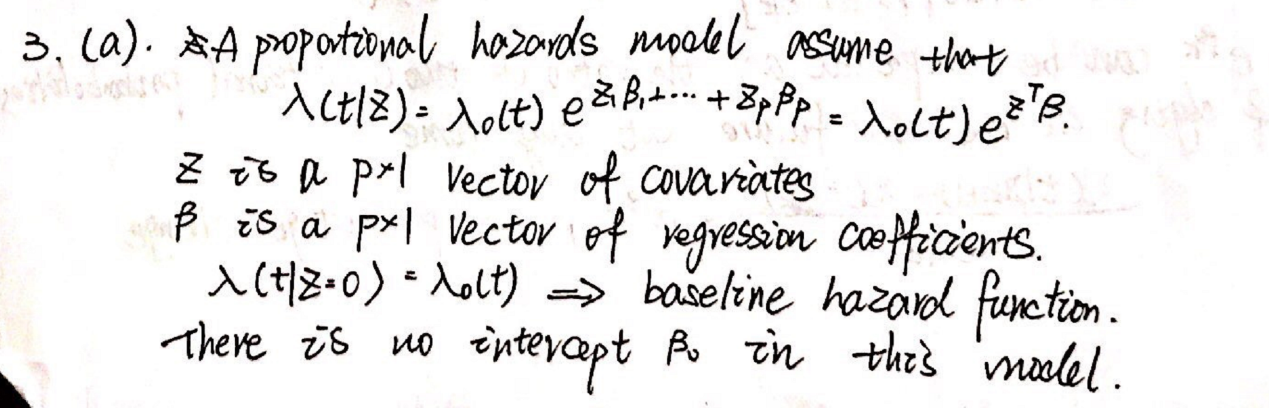 3. (a). A proportional hazards model assume that
λ(t|Z) = λ₀(t) e^{Z₁β₁+···+Zₚβₚ} = λ₀(t) e^{Zᵀβ}.
Z is a p×1 vector of covariates
β is a p×1 vector of regression coefficients.
λ(t|Z=0) = λ₀(t) ⇒ baseline hazard function.
There is no intercept β₀ in this model.